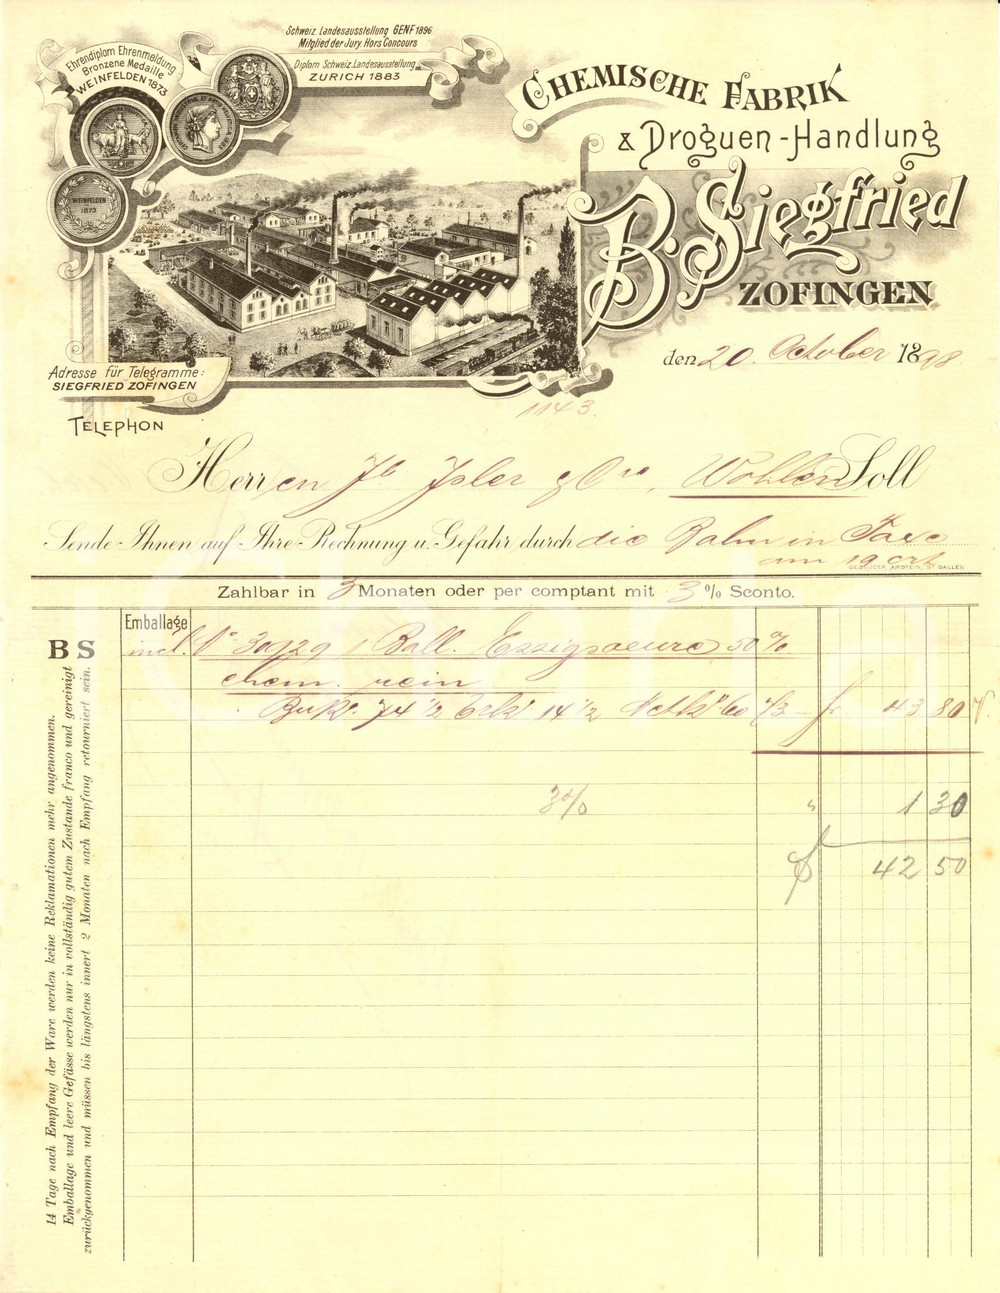 Schweiz. Landesausstellung GENF 1896
Mitglied der Jury. Hors Concours
Diplom Schweiz. Landesausstellung
ZURICH 1883
Ehrendiplom Ehrenmeldung
Bronzene Medaille
WEINFELDEN 1873
WEINFELDEN
1873
CHEMISCHE FABRIK
& Droguen-Handlung
B. Siegfried
ZOFINGEN
den 20. October 1898
Adresse für Telegramme:
SIEGFRIED ZOFINGEN
TELEPHON
1143.
Herren Jb. Isler & Cie, Wohlen Soll
Sende Ihnen auf Ihre Rechnung u. Gefahr durch die Bahn in
am 19 ct
GEBRÜDER AMSTEIN, ST. GALLEN
Zahlbar in 3 Monaten oder per comptant mit 3 % Sconto.
BS
Emballage
incl. No 30129 1 Ball. Essigsaeure 50 %
chem. rein
74 1/2 14 1/2 60 73 fr 43 80
3% " 1 30
fr 42 50
14 Tage nach Empfang der Ware werden keine Reklamationen mehr angenommen.
Emballage und leere Gefässe werden nur in vollständig gutem Zustande franco und gereinigt
zurückgenommen und müssen bis längstens innert 2 Monaten nach Empfang retourniert sein.